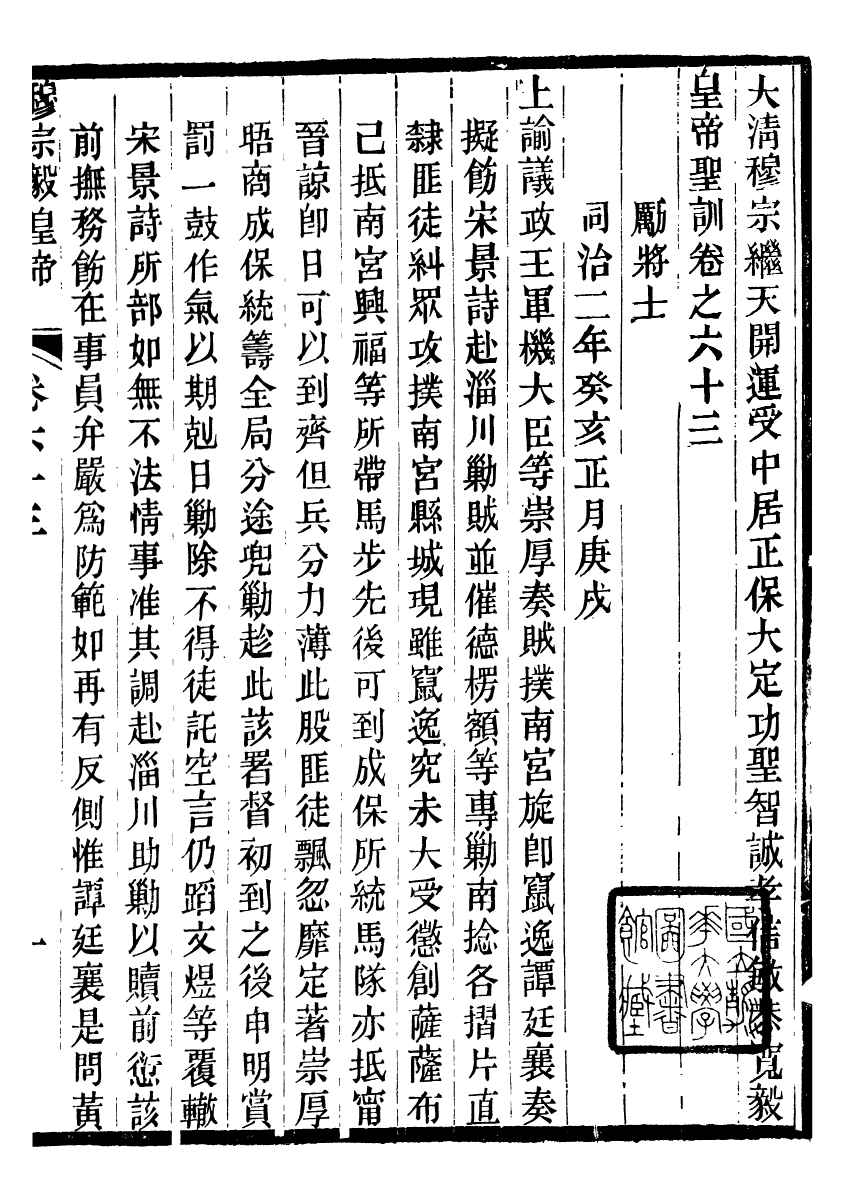 大淸穆宗繼天開運受中居正保大定功聖智誠孝信敏恭寬毅
皇帝聖訓卷之六十三
勵將士
同治二年癸亥正月庚戌
上諭議政王軍機大臣等崇厚奏賊撲南宮旋卽竄逸譚廷襄奏
擬飭宋景詩赴淄川勦賊並催德楞額等專勦南捻各摺片直
隸匪徒糾眾攻撲南宮縣城現雖竄逸究未大受懲創薩薩布
已抵南宮興福等所帶馬步先後可到成保所統馬隊亦抵甯
晉諒卽日可以到齊但兵分力薄此股匪徒飄忽靡定著崇厚
晤商成保統籌全局分途兜勦趁此該署督初到之後申明賞
罰一鼓作氣以期剋日勦除不得徒託空言仍蹈文煜等覆轍
宋景詩所部如無不法情事准其調赴淄川助勦以贖前愆該
前撫務飭在事員弁嚴爲防範如再有反側惟譚廷襄是問黃
穆宗毅皇帝
卷六十三
一
國立清華大學圖書館藏